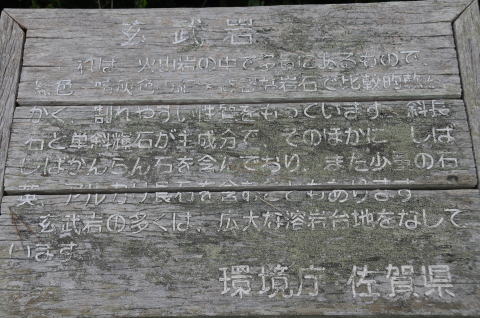 玄武岩
れは、火山岩の中で
岩石で比較的
かく、割れやすい性質をもっています。斜長
石と単斜輝石が主成分で、そのほかに、しば
しばかんらん石を含んでおり、また少量の石
英、アルカリ長石を含むこともあります。
玄武岩の多くは、広大な溶岩台地をなして
います。
環境庁 佐賀県